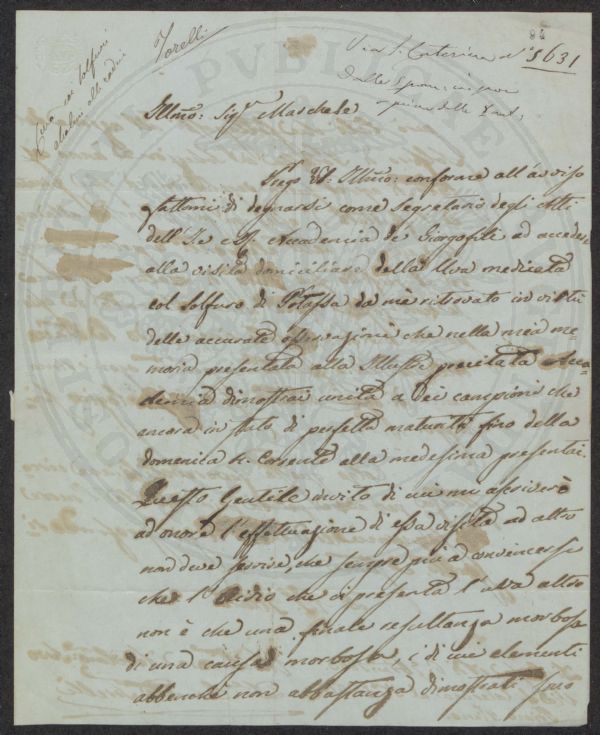 94
Torelli
Cura coi solfuri
alcalini alle radici
Via S. Caterina N° 5631
dalle 8 pom: in poi
o prima delle
Illmo: Sigr. Marchese
Prego V.S. Illmo: conforme all'avviso
fattomi di degnarsi come Segretario degli Atti
dell'I. e R. Accademia dei Giorgofili ad accedere
alla visita domiciliare della Uva medicata
col Solfuro di Potassa da me ritrovato in virtù
delle accurate osservazioni che nella mia me
moria presentata alla Illustre precitata Acca
demia dimostrai unita a dei campioni che
ancora in stato di perfetta maturità fino della
domenica corrente alla medesima presentai.
Questo Gentile invito di cui mi ascriverò
ad onore l'effettuazione di essa visita ad altro
non deve servire, che sempre più a convincersi
che l'Oidio che ci presenta l'uva altro
non è che una finale resultanza morbosa
di una causa morbosa, i di cui elementi
abbenche non abbastanza dimostrati sono